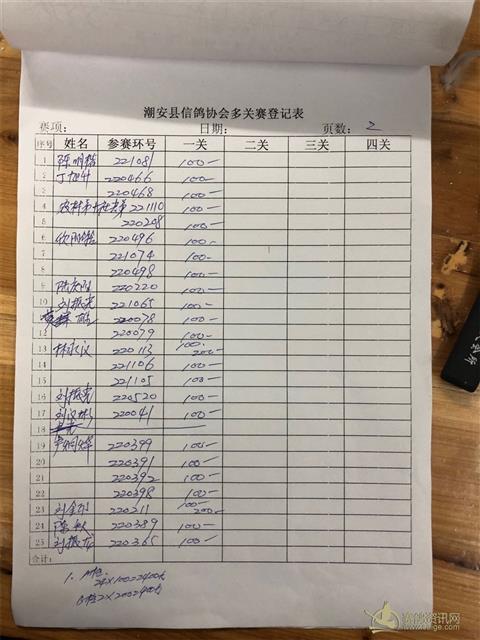 潮安县信鸽协会多关赛登记表
赛项： 日期： 页数：2
序号 姓名 参赛环号 一关 二关 三关 四关
1 陈明辉 221081 100-
2 丁旭升 220466 100-
3 220468 100-
4 221110 100-
5 220208 100-
6 220496 100-
7 221074 100-
8 220498 100-
9 220220 100-
10 刘振亮 221065 100-
220078 100-
12 220079 100-
13 林永汉 220113 100- 200-
14 221106 100-
15 221105 100-
16 刘振亮 220520 100-
17 刘汉彬 220041 100-
18
19 220399 100-
20 220391 100-
21 220392 100-
22 220398 100-
23 220211 100- 200-
24 220389 100-
25 220365 100-
合计：
1. A栏
24×100=2400元
B栏2×200=400元